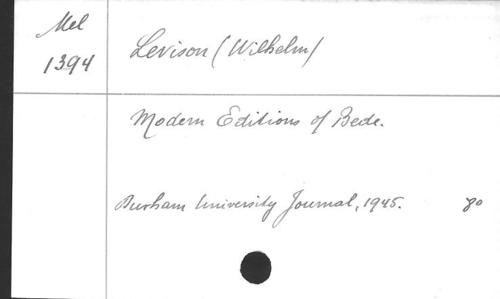 Mel
1394
Levison (Wilhelm)
Modern Editions of Bede.
Durham University Journal, 1945. 8o